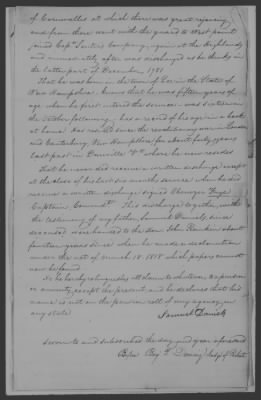 of Cornwallis at which there was great rejoicing
and from there went with the guard to West point
joined Capt Company, again at the Highlands
and immediately after was discharged as he thinks in
the latter part of December, 1781
That he was born in the town of Lee in the State of
New Hampshire. Knows that he was fifteen years of
age when he first entered the service - was sixteen in
the October following, has a record of his age in a book
at home. Has resided since the revolutionary war in
and Canterbury, New Hampshire, for about forty years
last past in Danville Vt where he now resides
That he never did receive a written discharge except
at the close of his last six months service when he did
receive a written discharge signed Ebenezer Frye
Captain Commdt. This discharge together with
the testimony of my father, Samuel Daniels, since
deceased were handed to the Hon. John Rankin about
fourteen years since when he made a declaration
under the act of March 18. 1818 which papers cannot
now be found.
He hereby relinquishes all claim to whatever to a pension
or annuity, except the present and he declares that his
name is not on the pension roll of any agency in
any state
Samuel Daniels
Sworn to and subscribed the day and year aforesaid
Before Benj N Deming Judge of Probate